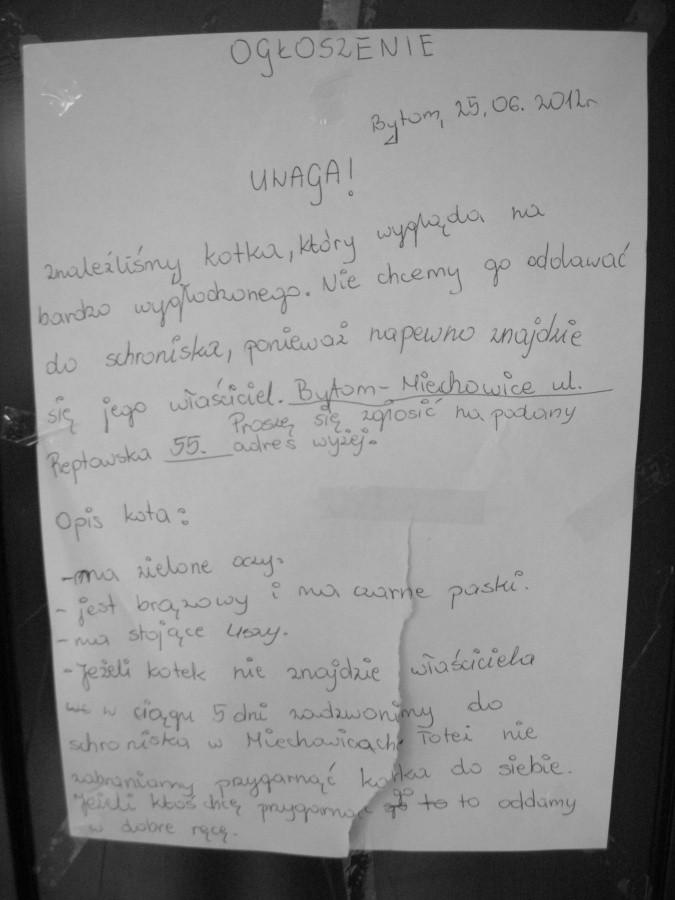 OGŁOSZENIE
Bytom, 25.06.2012r
UWAGA!
znaleźliśmy kotka, który wygląda na
bardzo wygłodzonego. Nie chcemy go oddawać
do schroniska, ponieważ napewno znajdzie
się jego właściciel. Bytom-Miechowice ul.
Proszę się zgłosić na podany
Reptowska 55. adres wyżej.
Opis kota:
-ma zielone oczy.
- jest brązowy i ma czarne paski.
-ma stojące uszy.
-Jeżeli kotek nie znajdzie właściciela
w ciągu 5 dni zadzwonimy do
schroniska w Miechowicach. Toteż nie
zabraniamy przygarnąć kotka do siebie.
Jeżeli ktoś chcę przygarnąć go to to oddamy
w dobre ręcę.